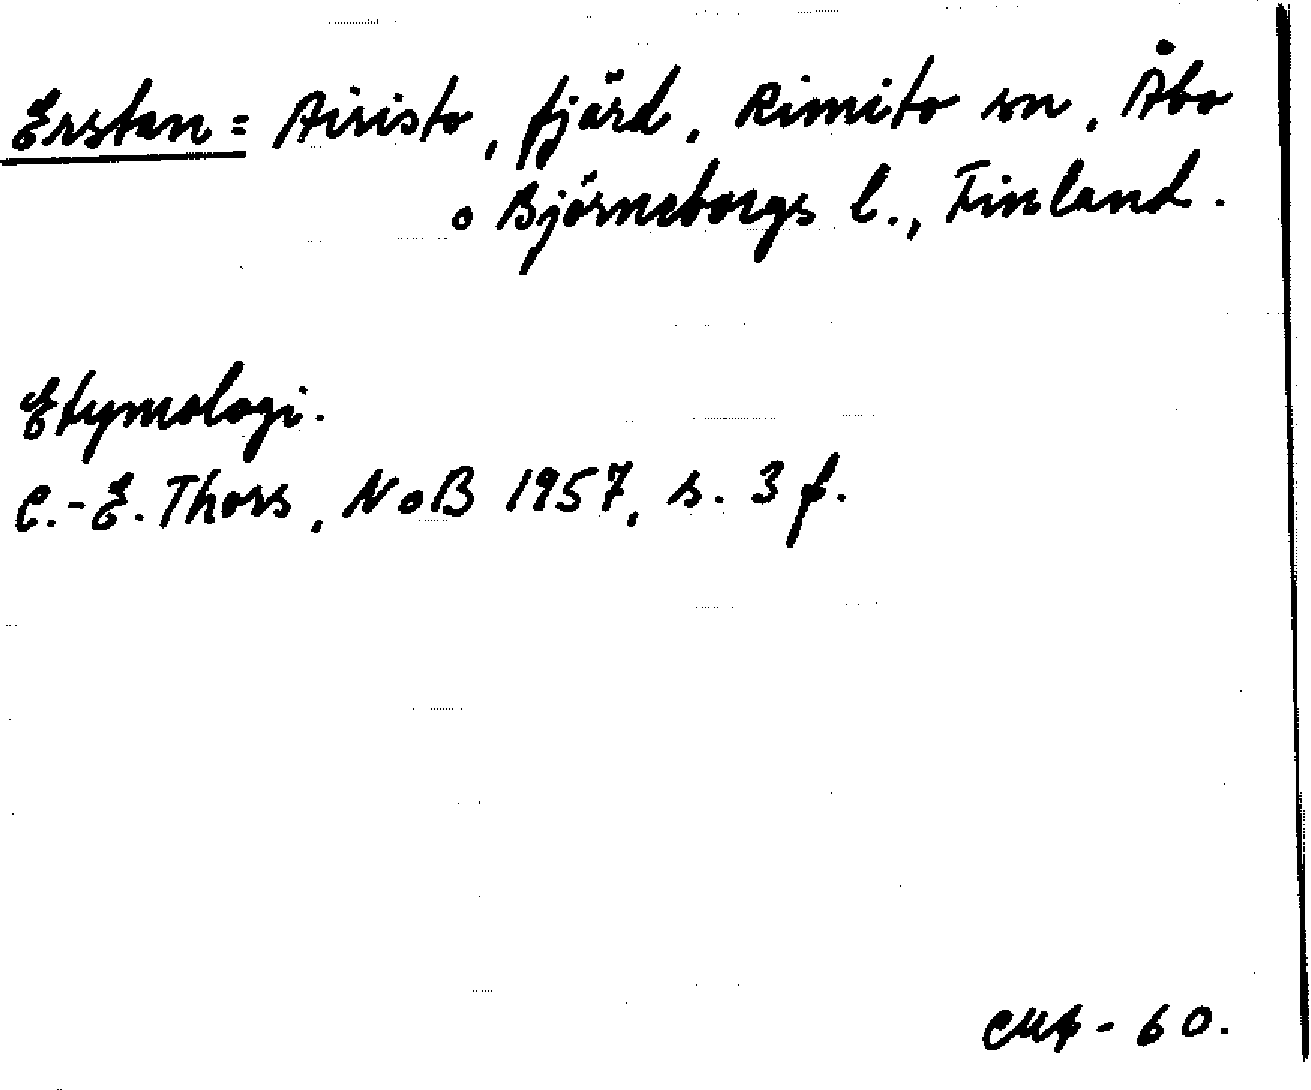 Erstan = Airisto, fjärd, Rimito sn, Åbo
o Björneborgs l., Finland.
Etymologi.
C.-E. Thors, NoB 1957, s. 3 f.
- 60.